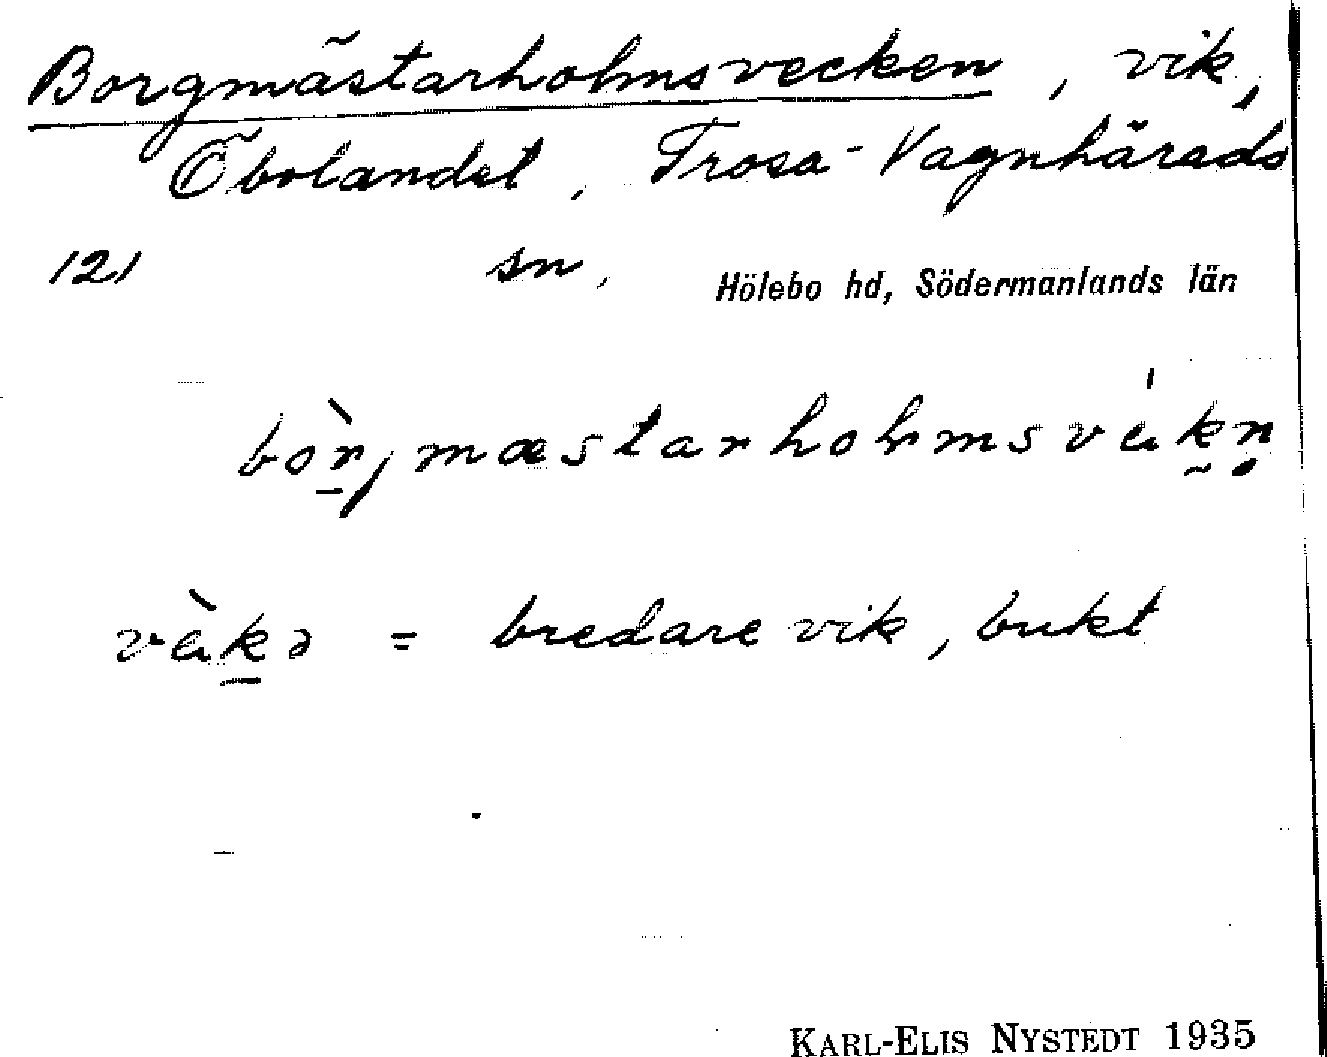 Borgmästarholmsvecken, vik,
Öbolandet, Trosa-Vagnhärads
121 sn, Hölebo hd, Södermanlands län
bòrjmæstarholmsvákn
vàkə = bredare vik, bukt
KARL-ELIS NYSTEDT 1935